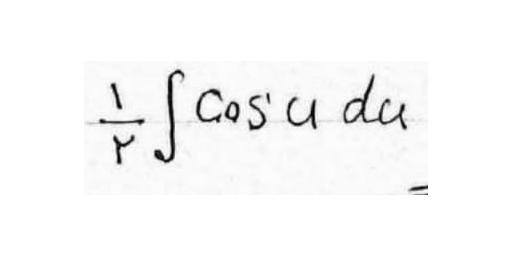 ۱/۲ ∫ cos u du =